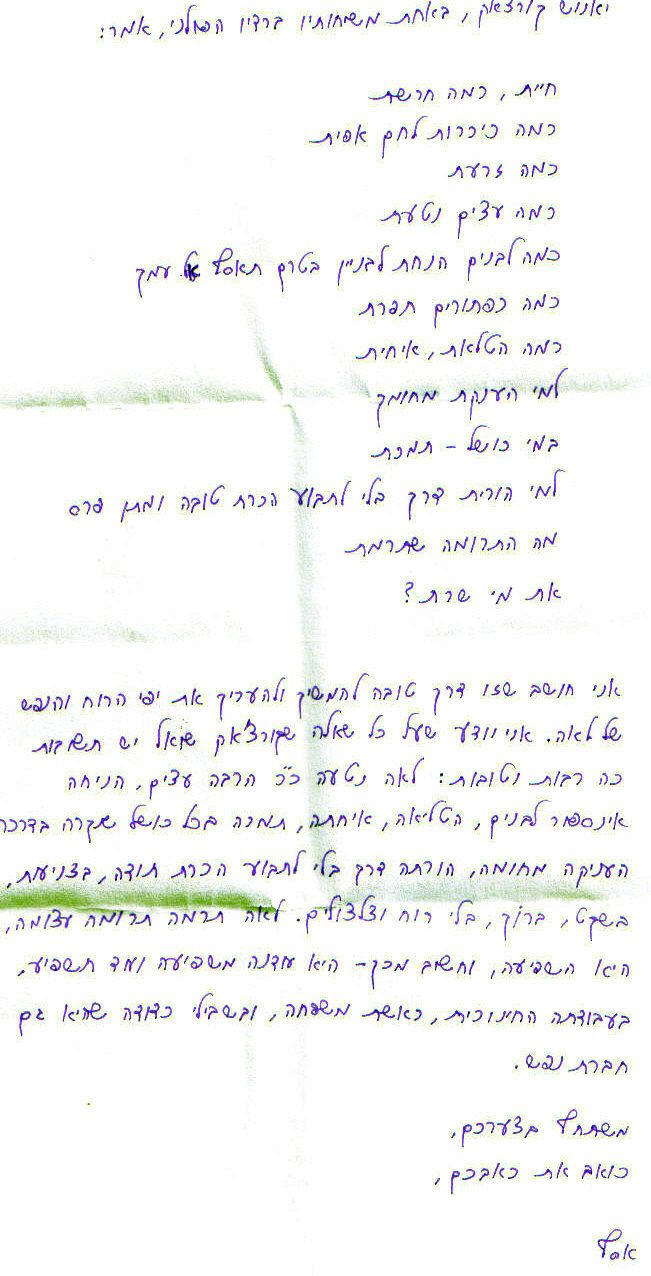 יאנוש קורצ'אק, באחת משיחותיו ברדיו הפולני, אמר:
חיית, כמה חרשת
כמה כיכרות לחם אפית
כמה זרעת
כמה עצים נטעת
כמה לבנים הנחת לבניין בטרם תאסף אל עמך
כמה כפתורים תפרת
כמה הטלאת, איחית
למי הענקת מחומך
במי כושל - תמכת
למי הורית דרך בלי לתבוע הכרת טובה ומתן פרס
מה התרומה שתרמת
את מי שרת?
אני חושב שזו דרך טובה להמשיך ולהעריך את יפי הרוח והנפש
של לאה. אני יודע שעל כל שאלה שקורצ'אק שואל יש תשובות
כה רבות וטובות: לאה נטעה כ"כ הרבה עצים, הניחה
אינספור לבנים, הטליאה, איחתה, תמכה בכל כושל שקרה בדרכה
העניקה מחומה, הורתה דרך בלי לתבוע הכרת תודה, בצניעות,
בשקט, ברוך, בלי רוח וצלצולים. לאה תרמה תרומה עצומה,
היא השפיעה, וחשוב מכך - היא עודנה משפיעה ועוד תשפיע,
בעבודתה החינוכית, כאשת משפחה, ובשבילי כדודה שהיא גם
חברת נפש.
משתתף בצערכם,
כואב את כאבכם,
אסף